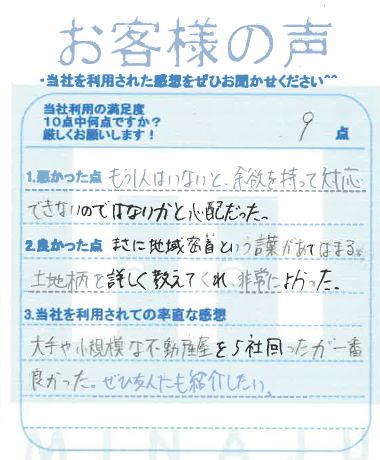 お客様の声
・当社を利用された感想をぜひお聞かせください^^
当社利用の満足度
10点中何点ですか？
厳しくお願いします！
9 点
1.悪かった点 もう1人はいないと、余欲を持って対応
できないのではないかと心配だった。
2.良かった点 まさに地域密着という言葉があてはまる。
土地柄を詳しく教えてくれ、非常によかった。
3.当社を利用されての率直な感想
大手や小規模な不動産屋を5社回ったが一番
良かった。ぜひ友人にも紹介したい。
MINAJU